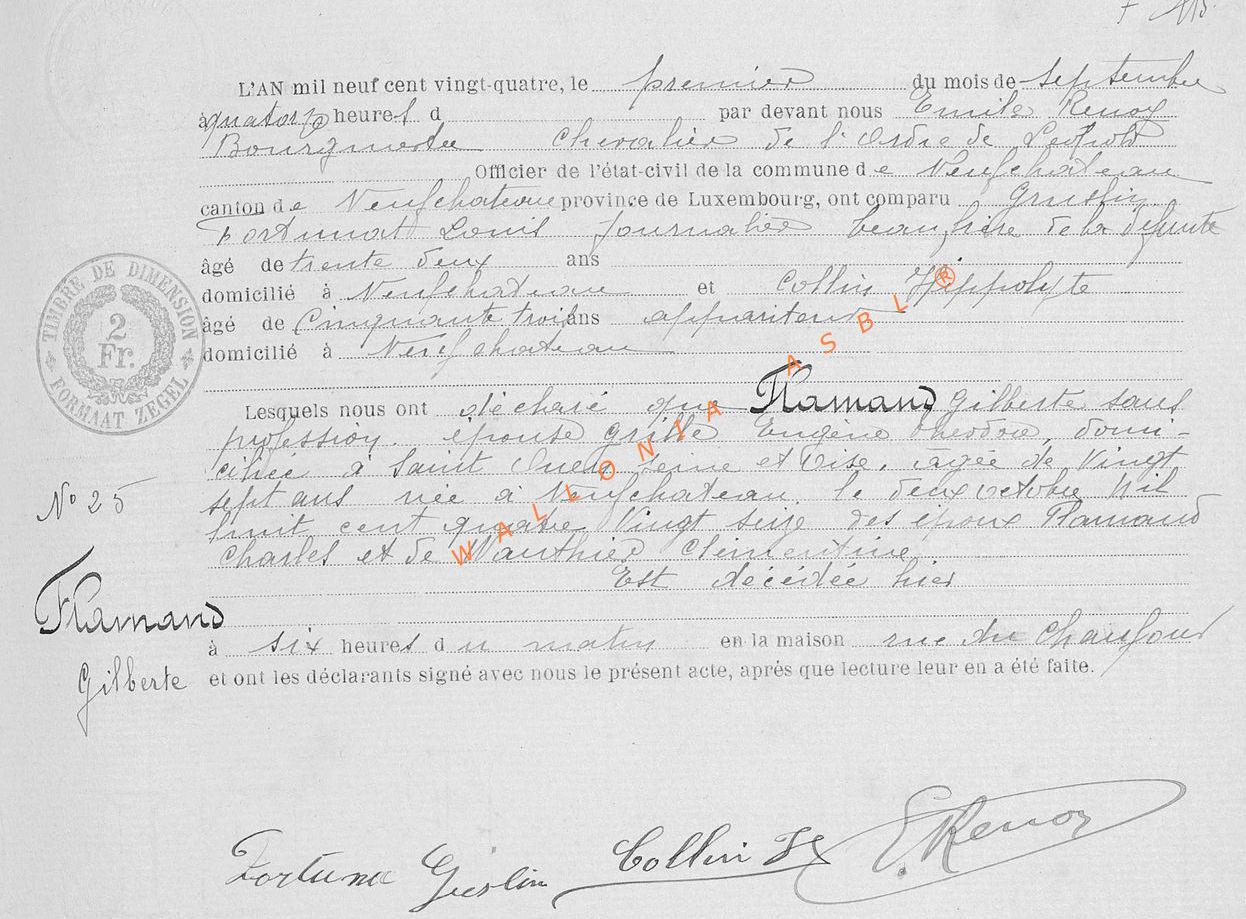 L'AN mil neuf cent vingt-quatre, le premier du mois de septembre
à quatorze heures d par devant nous Emile Renoy
Bourgmestre Chevalier de l'Ordre de Léopold
Officier de l'état-civil de la commune de Neufchateau
canton de Neufchateau province de Luxembourg, ont comparu
Fortunat Louis Journalier beau frère de la défunte
âgé de trente deux ans
domicilié à Neufchateau et Collin Hippolyte
âgé de Cinquante trois ans appariteur
domicilié à Neufchateau
TIMBRE DE DIMENSION
2
Fr.
FORMAAT ZEGEL
Lesquels nous ont déclaré que Flamand Gilberte sans
profession. épouse Eugène Theodore, domi-
ciliée à Saint Ouen Seine et Oise, âgée de Vingt
sept ans née à Neufchateau, le deux octobre Mil
huit cent quatre Vingt seize des époux Flamand
Charles et de Wauthier Clémentine
Est décédée hier
à six heures du matin en la maison rue du Chaufour
et ont les déclarants signé avec nous le présent acte, après que lecture leur en a été faite.
No 25
Flamand
Gilberte
WALLONIA ASBL ®
Collin H
E. Renoy